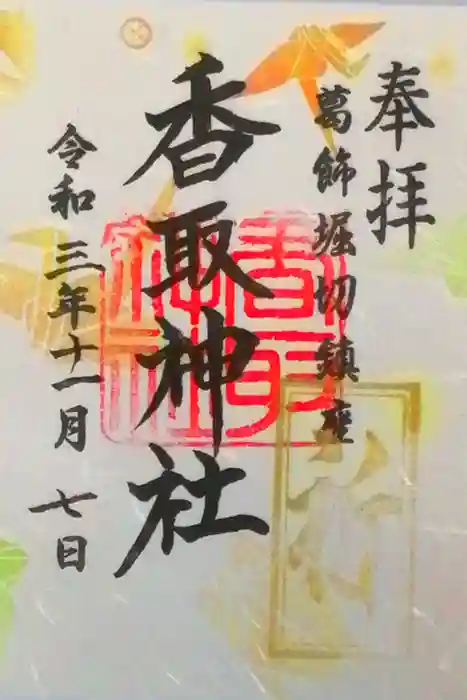 奉拝
葛飾堀切鎮座
香取神社
令和三年十一月七日
香取神社